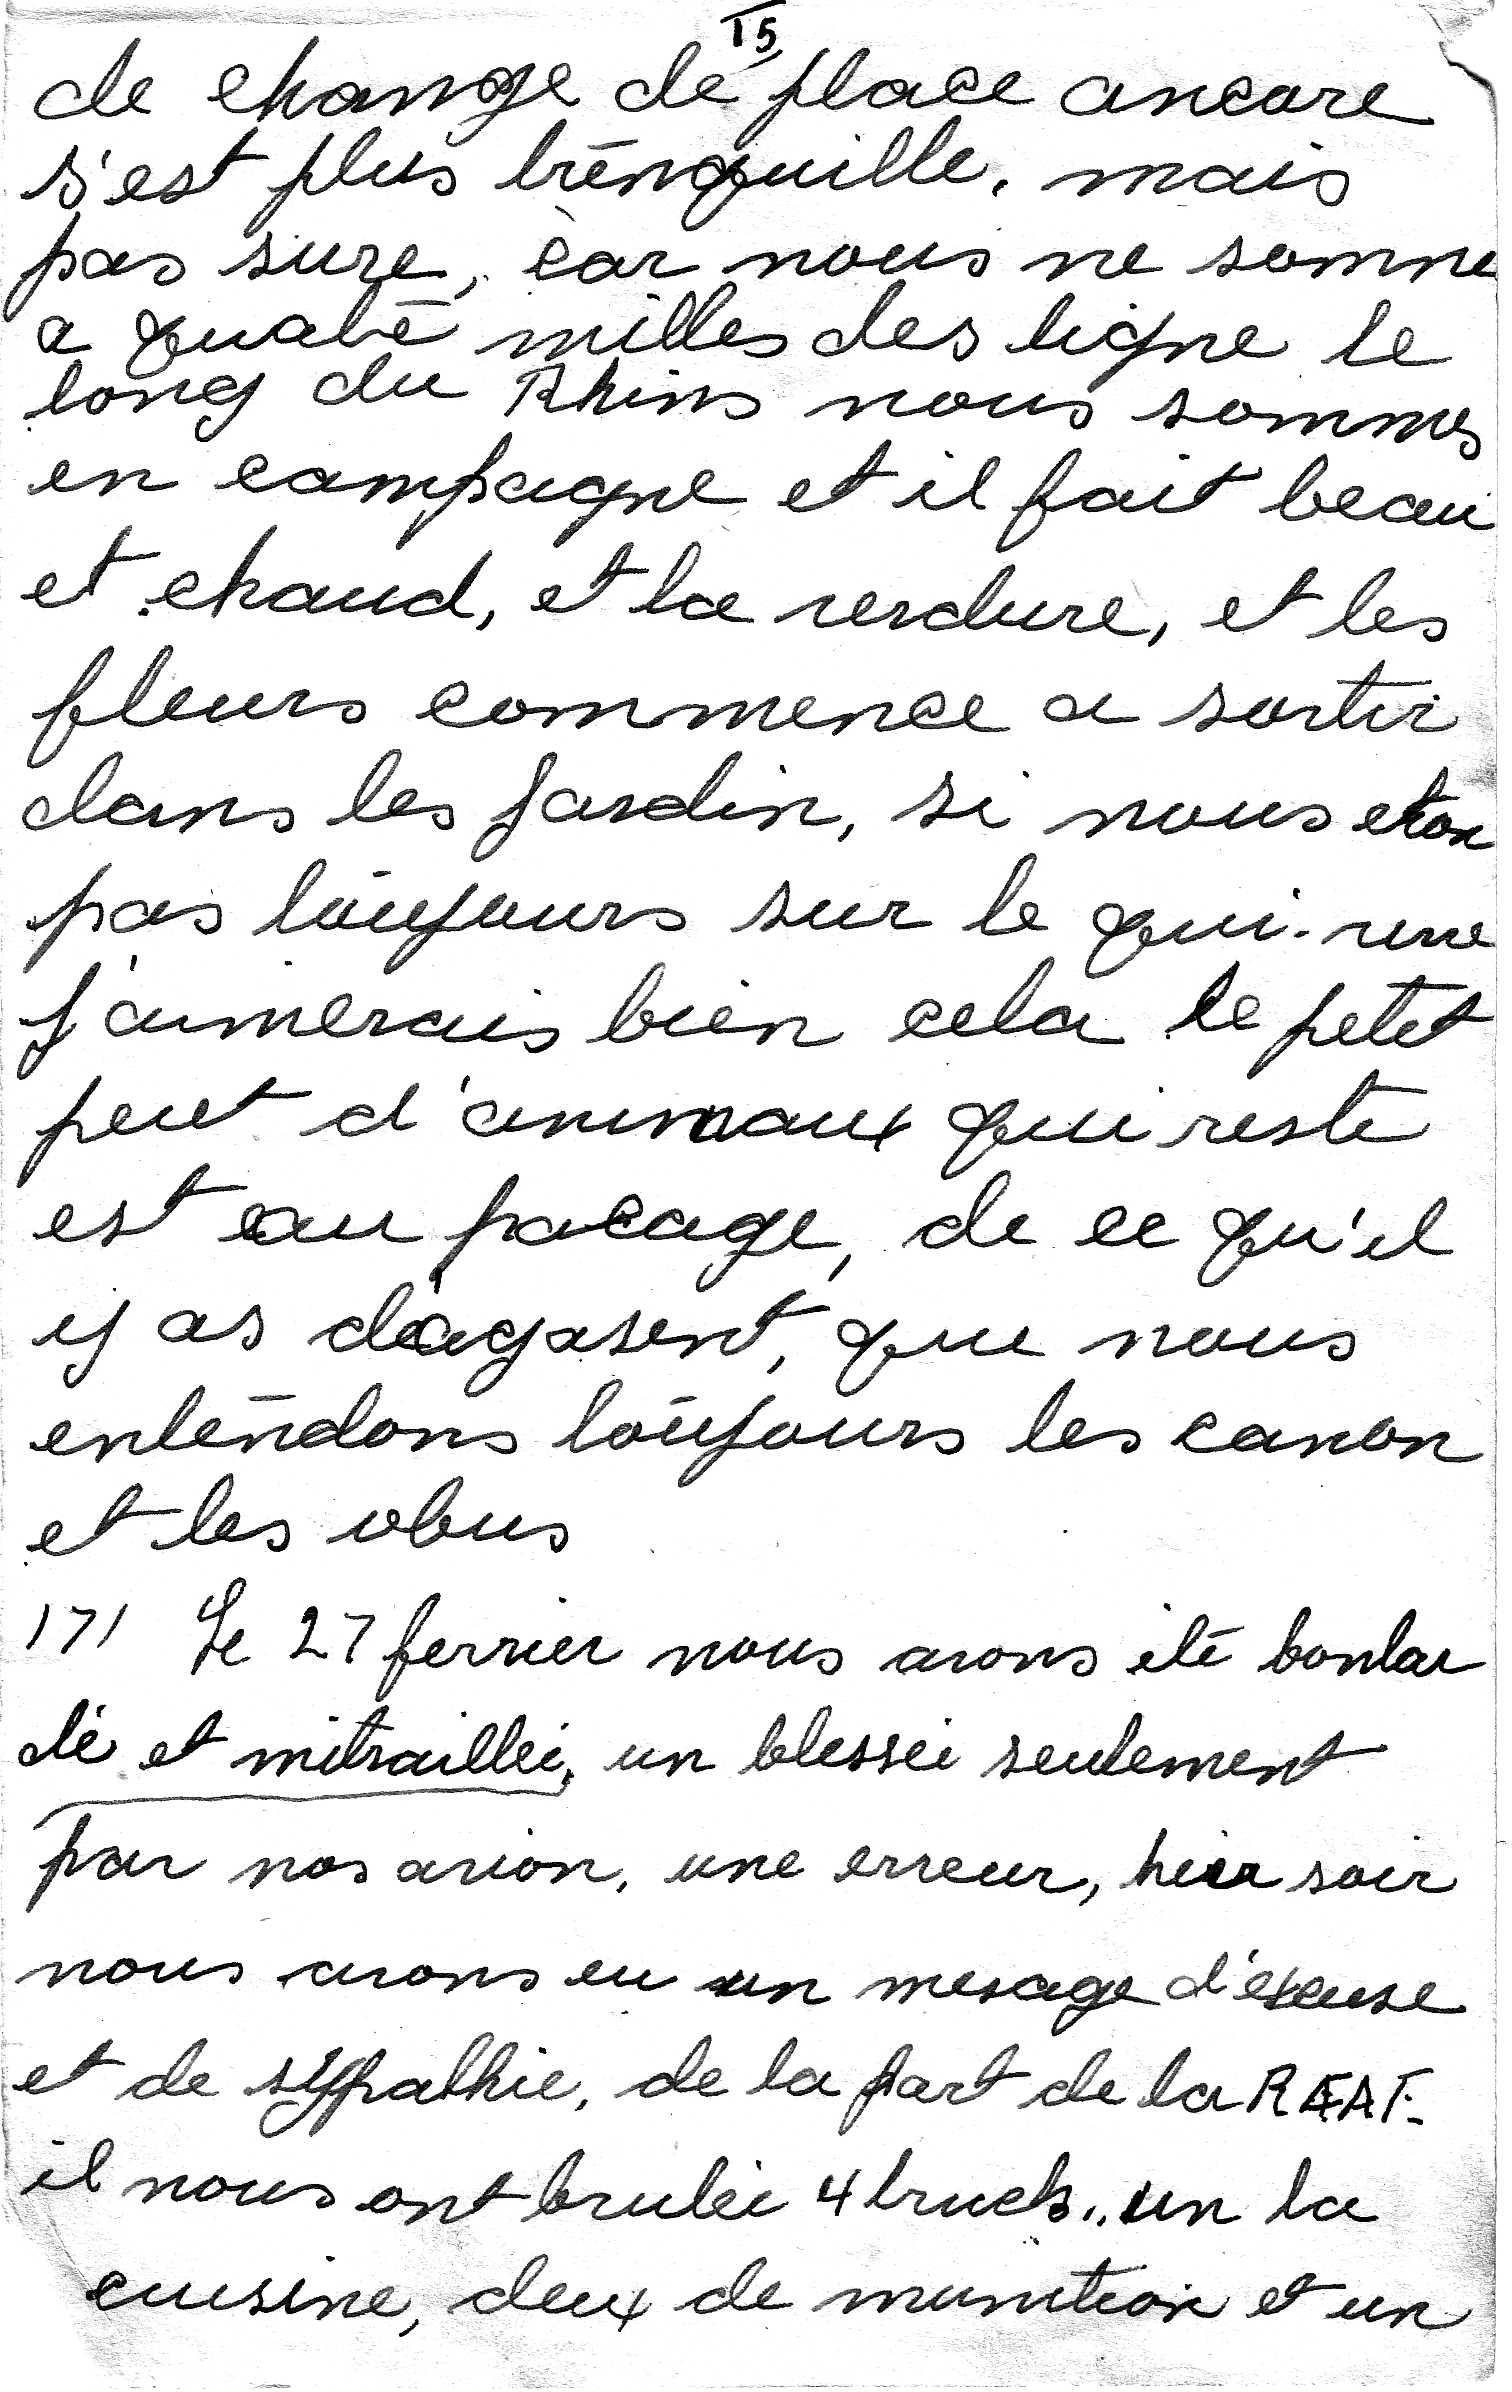 15
de change de place ancore
s'est plus trénquille. mais
pas sure, car nous ne somme
a quatre milles des ligne le
long du Rhins nous sommes
en campagne et il fait beau
et chaud, et la verdure, et les
fleurs commence a sortir
dans les jardin, si nous eton
pas toujours sur le qui-vive
j'aimerais bien cela le petit
peut d'animaux qui reste
est au pacage, de ce qu'il
y as d'agasent, que nous
entendons toujours les canon
et les obus
171 Le 27 fevrier nous avons été bonbar
dé et mitraillée, un blessée seulement
par nos avion, une erreur, hier soir
nous avons eu un mesage d'excuse
et de sypathie, de la part de la
il nous ont brulée 4 truck., un la
cuisine, deux de munition et un